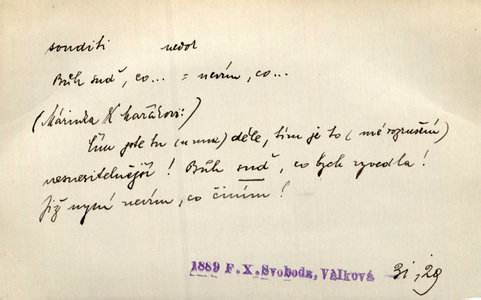 souditi nedok
Bůh suď, co... = nevím, co...
(Márinka K Mařákovi:)
Čím jste tu (u mne) déle, tím je to (mé rozrušení)
nesnesitelnější! Bůh suď, co bych vyvedla!
Již nyní nevím, co činím!
1889 F. X. Svoboda, Válková 31, 28